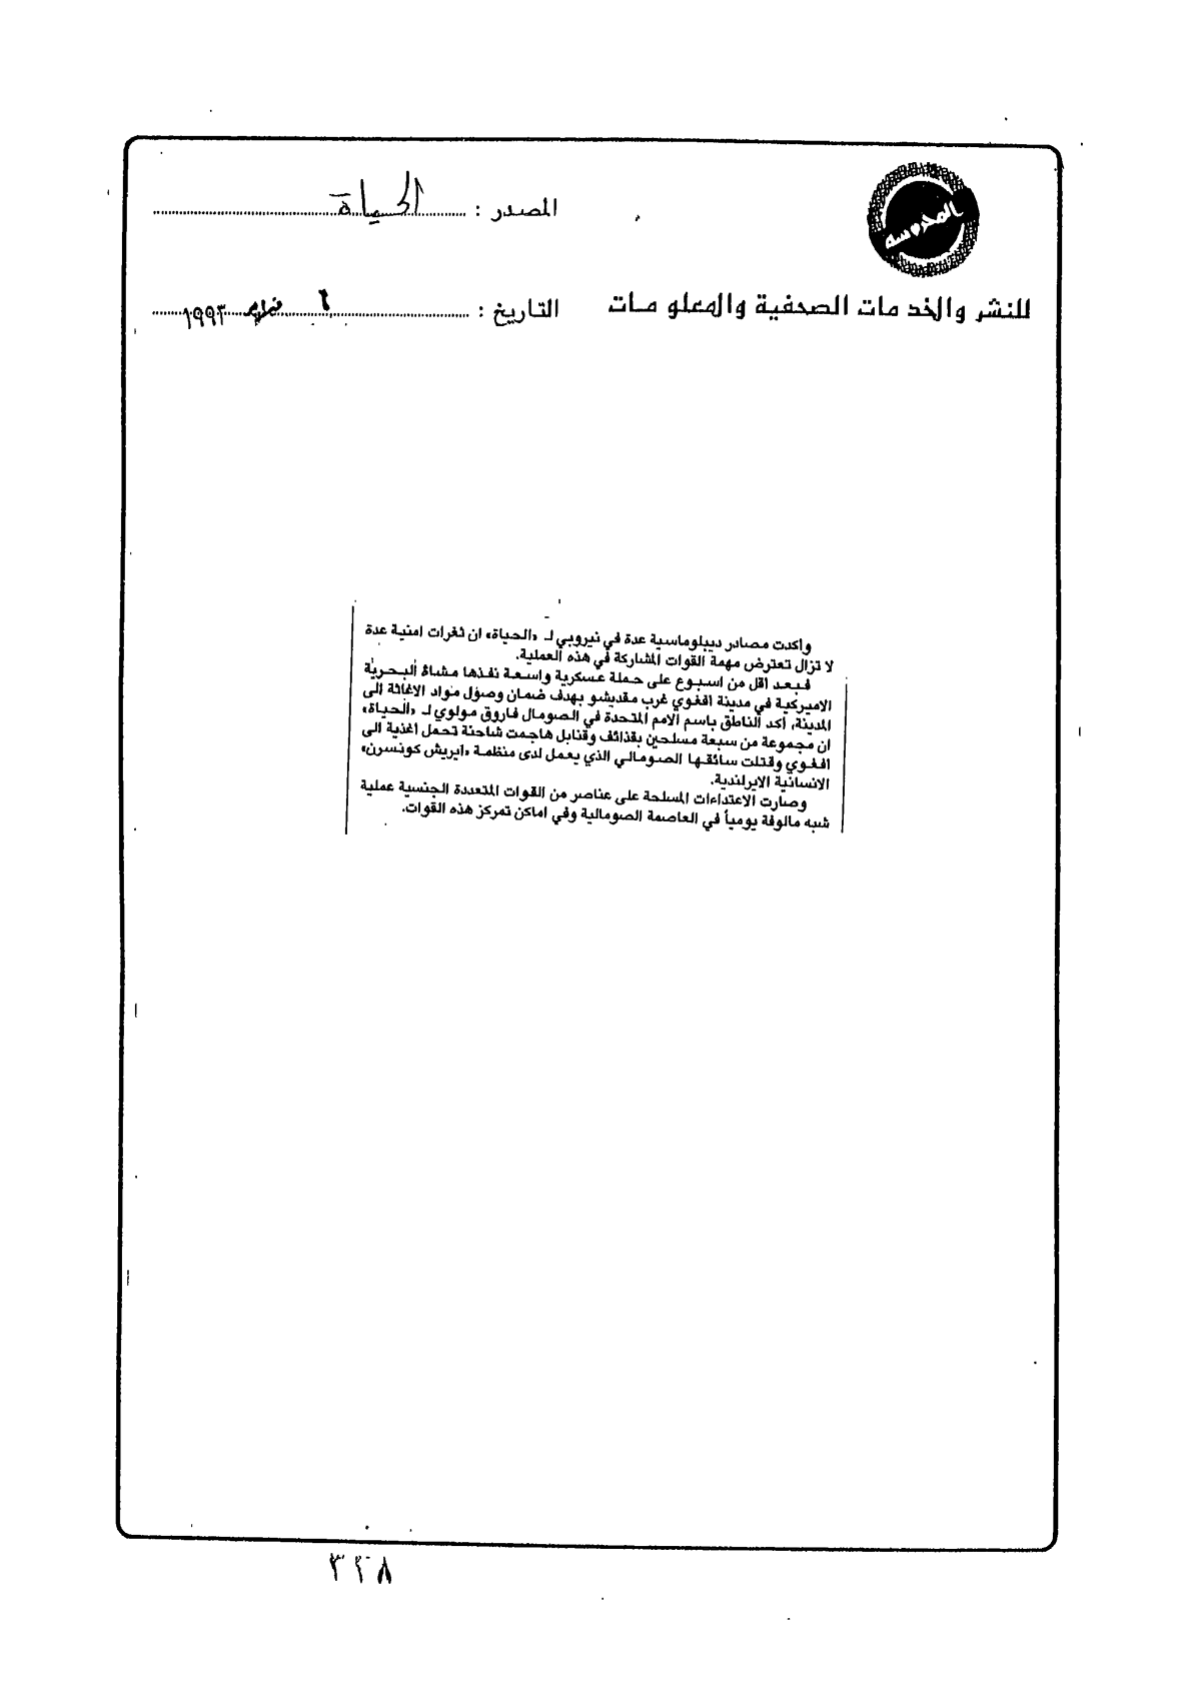 المحروسة
المصدر : الحياة
للنشر والخدمات الصحفية والمعلومات
التاريخ : ٦ فبراير ١٩٩٣
واكدت مصادر ديبلوماسية عدة في نيروبي لـ «الحياة» ان ثغرات امنية عدة
لا تزال تعترض مهمة القوات المشاركة في هذه العملية.
فبعد اقل من اسبوع على حملة عسكرية واسعة نفذها مشاة البحرية
الاميركية في مدينة افغوي غرب مقديشو بهدف ضمان وصول مواد الاغاثة الى
المدينة، أكد الناطق باسم الامم المتحدة في الصومال فاروق مولوي لـ «الحياة»
ان مجموعة من سبعة مسلحين بقذائف وقنابل هاجمت شاحنة تحمل اغذية الى
افغوي وقتلت سائقها الصومالي الذي يعمل لدى منظمة «ايريش كونسرن»
الانسانية الايرلندية.
وصارت الاعتداءات المسلحة على عناصر من القوات المتعددة الجنسية عملية
شبه مالوفة يومياً في العاصمة الصومالية وفي اماكن تمركز هذه القوات.
٣٢٨